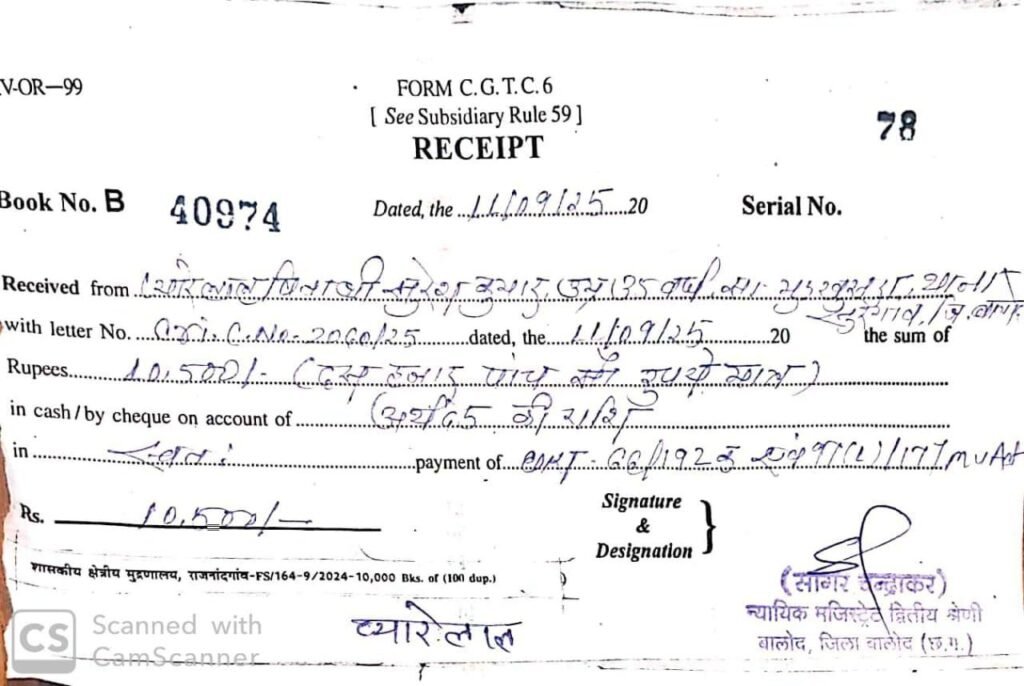 V-OR—99
FORM C.G.T.C. 6
[ See Subsidiary Rule 59 ]
RECEIPT
78
Book No. B 40974 Dated, the 11/09/25 20 Serial No.
Received from प्यारेलाल पिता श्री सुरेश कुमार, उम्र 35 वर्ष, सा. थाना
with letter No. C.No. 2060/25 dated, the 11/09/25 20 the sum of
Rupees 10,500/- (दस हजार पांच सौ रुपये मात्र)
in cash/by cheque on account of (अर्थदण्ड की राशि
in स्वतः payment of 66/192 177 MV Act
Rs. 10,500/-
Signature
&
Designation
शासकीय क्षेत्रीय मुद्रणालय, राजनांदगांव-FS/164-9/2024-10,000 Bks. of (100 dup.)
(सागर चन्द्राकर)
न्यायिक मजिस्ट्रेट द्वितीय श्रेणी
बालोद, जिला बालोद (छ.ग.)
प्यारेलाल
CS Scanned with
CamScanner